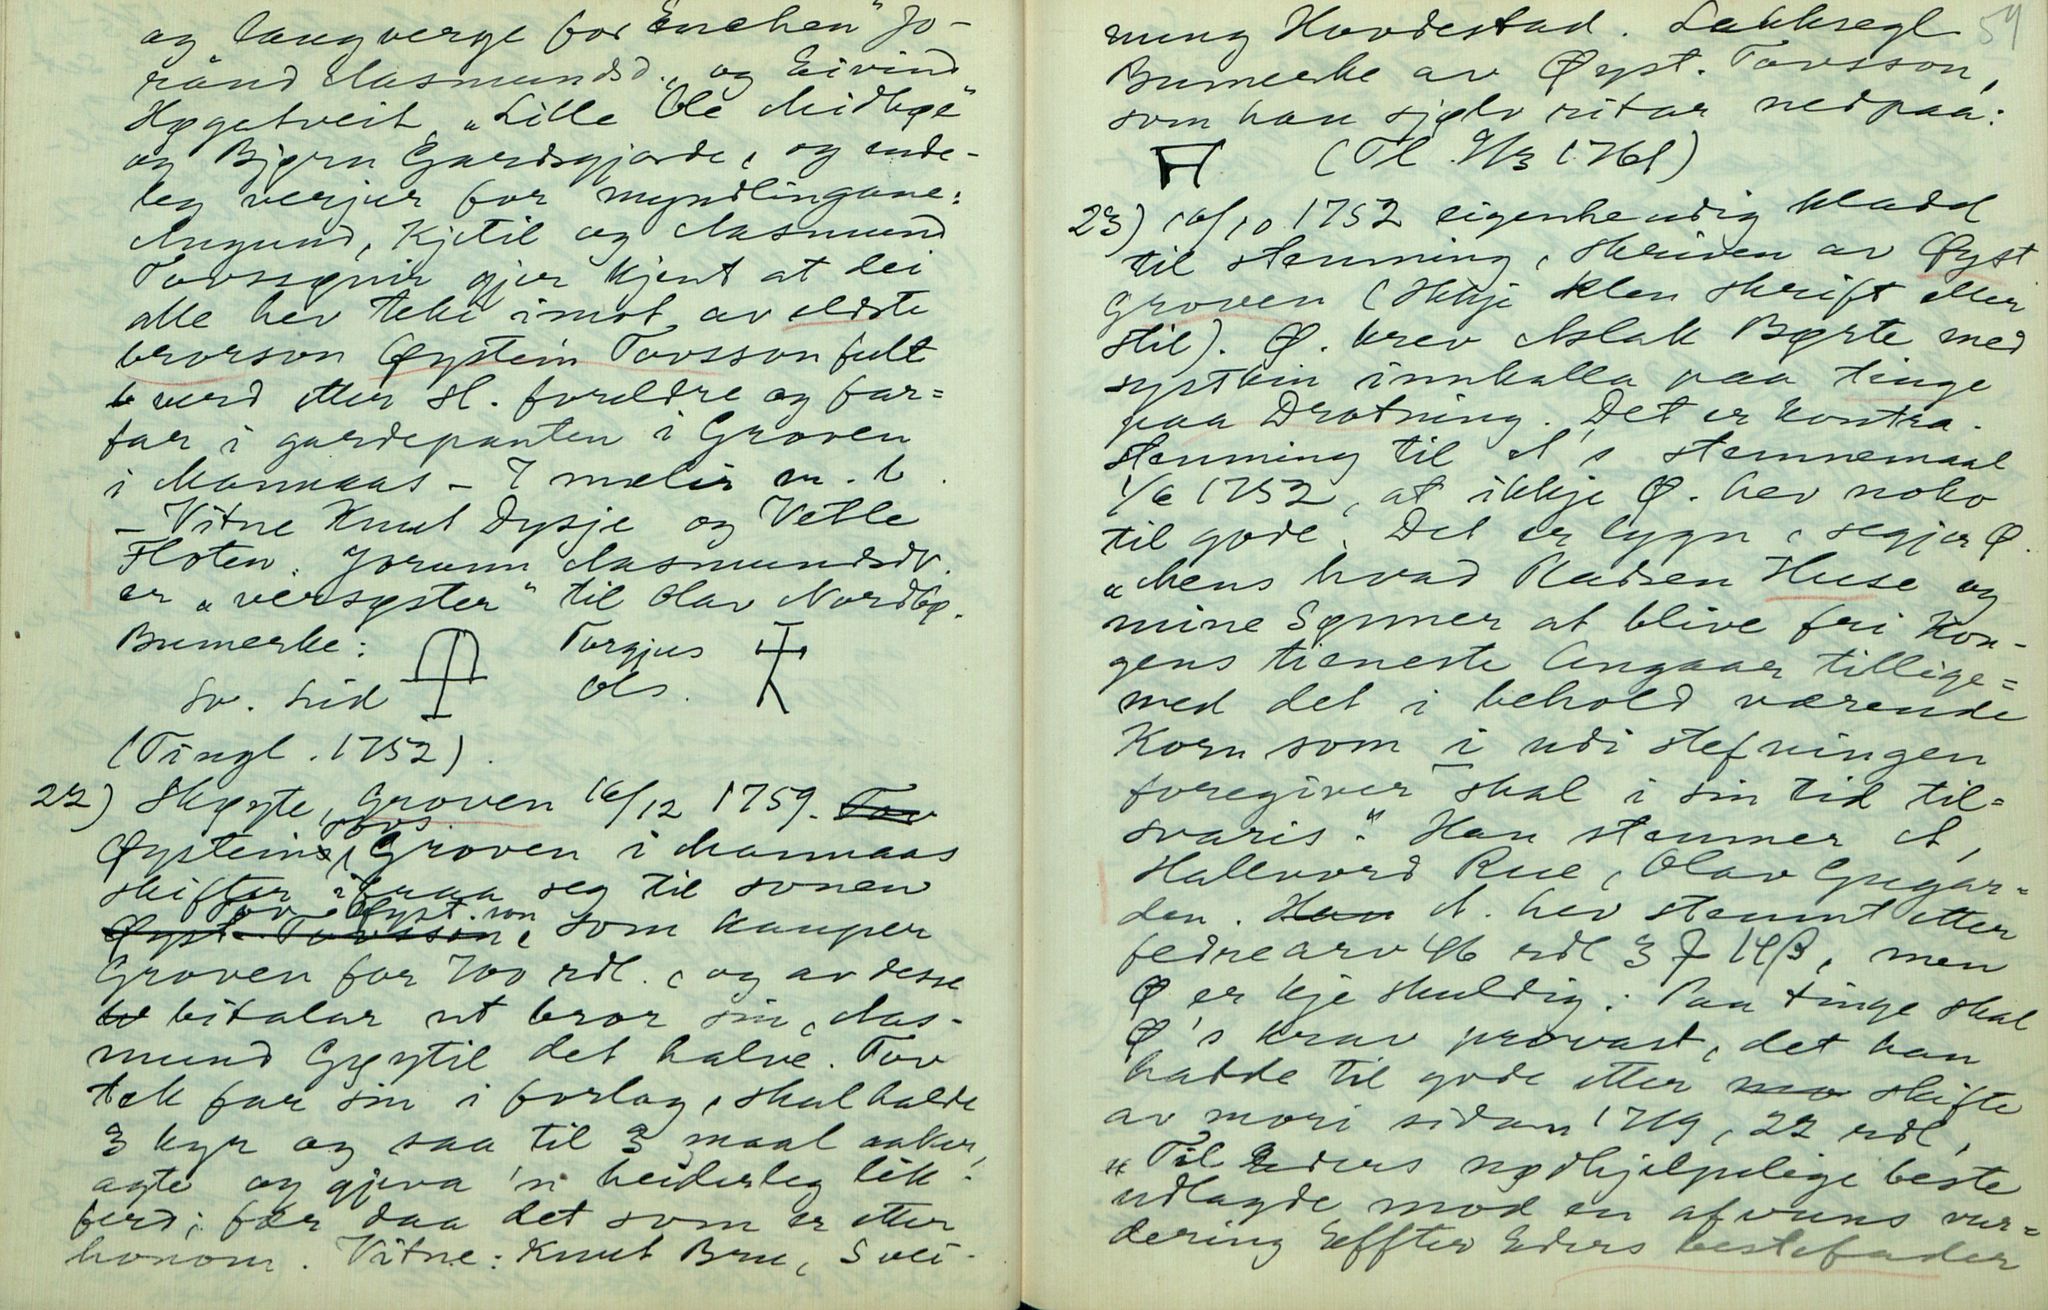 og laugverge for Enchen" Jo-
rånd Aasmundsd., og Eivind
Høgetveit, "Lille Ole Midbøe"
og Bjørn Gardsgjorde, og ende-
leg verjur for myndlingane:
Augund, Kjetil og Aasmund
Tovssønir gjer kjent at dei
alle hev teke imot av eldste
brorson Øystein Tovsson fult
verd etter sl. foreldre og far-
far i gardepanten i Groven
i Mannaas - 7 mælir m. b.
- Vitne Knut Dysje og Vetle
Floten. Jorunn Aasmundsdr.
er "versyster" til Olav Nordbø.
Bumerke: Torgjus
Sv. Lid Ols.
(Tingl. 1752).
22) Skøyte, Groven 16/12 1759. Tov
Øystein Tovs. Groven i Mannaas
skifter ifraa seg til sonen
Tov Øyst.son
Øyst. Tovsson, som kauper
Groven for 700 rdl., og av desse
bitalar ut bror sin, Aas-
mund Gøytil det halve. Tov
tek far sin i forlog, skal halde
3 kyr og saa til 3 maal aaker,
agte og gjeva 'n heiderleg lik-
ferd; fær daa det som er etter
honom. Vitne: Knut Bru, Svei-
54
nung Hovdestad. Lakksegl
Bumerke av Øyst. Tovsson,
som han sjølv ritar nedpaa:
(Tl. 9/3 1761)
23) 16/10 1752 eigenhendig kladd
til stemning, skriven av Øyst
Groven (ikkje klen skrift eller
stil). Ø. krev Aslak Børte med
systkin innkalla paa tinge
paa Drotning. Det er kontra-
stemning til A's stemnemaal
1/6 1752, at ikkje Ø. hev noko
til gode. Det er lygn, segjer Ø.
"Mens hvad Pladsen Huse og
mine Sønner at blive fri Kon-
gens tieneste Angaaer tillige=
med det i behold værende
Korn som i udi stefningen
foregiver skal i sin tid til=
svaris". Han stemner A,
Hallvord Rue, Olav Gugar=
den. Han A. hev stemnt etter
fedrearv 46 rdl 3 ƒ 14 β, men
Ø er kje skuldig. Paa tinge skal
Ø's krav prøvast, det han
hadde til gode etter mo skifte
av mori sidan 1749, 22 rdl,
"Til Eders nødhjelpelige beste
udlagde mod en afvuns vur=
dering Effter Eders bestefader